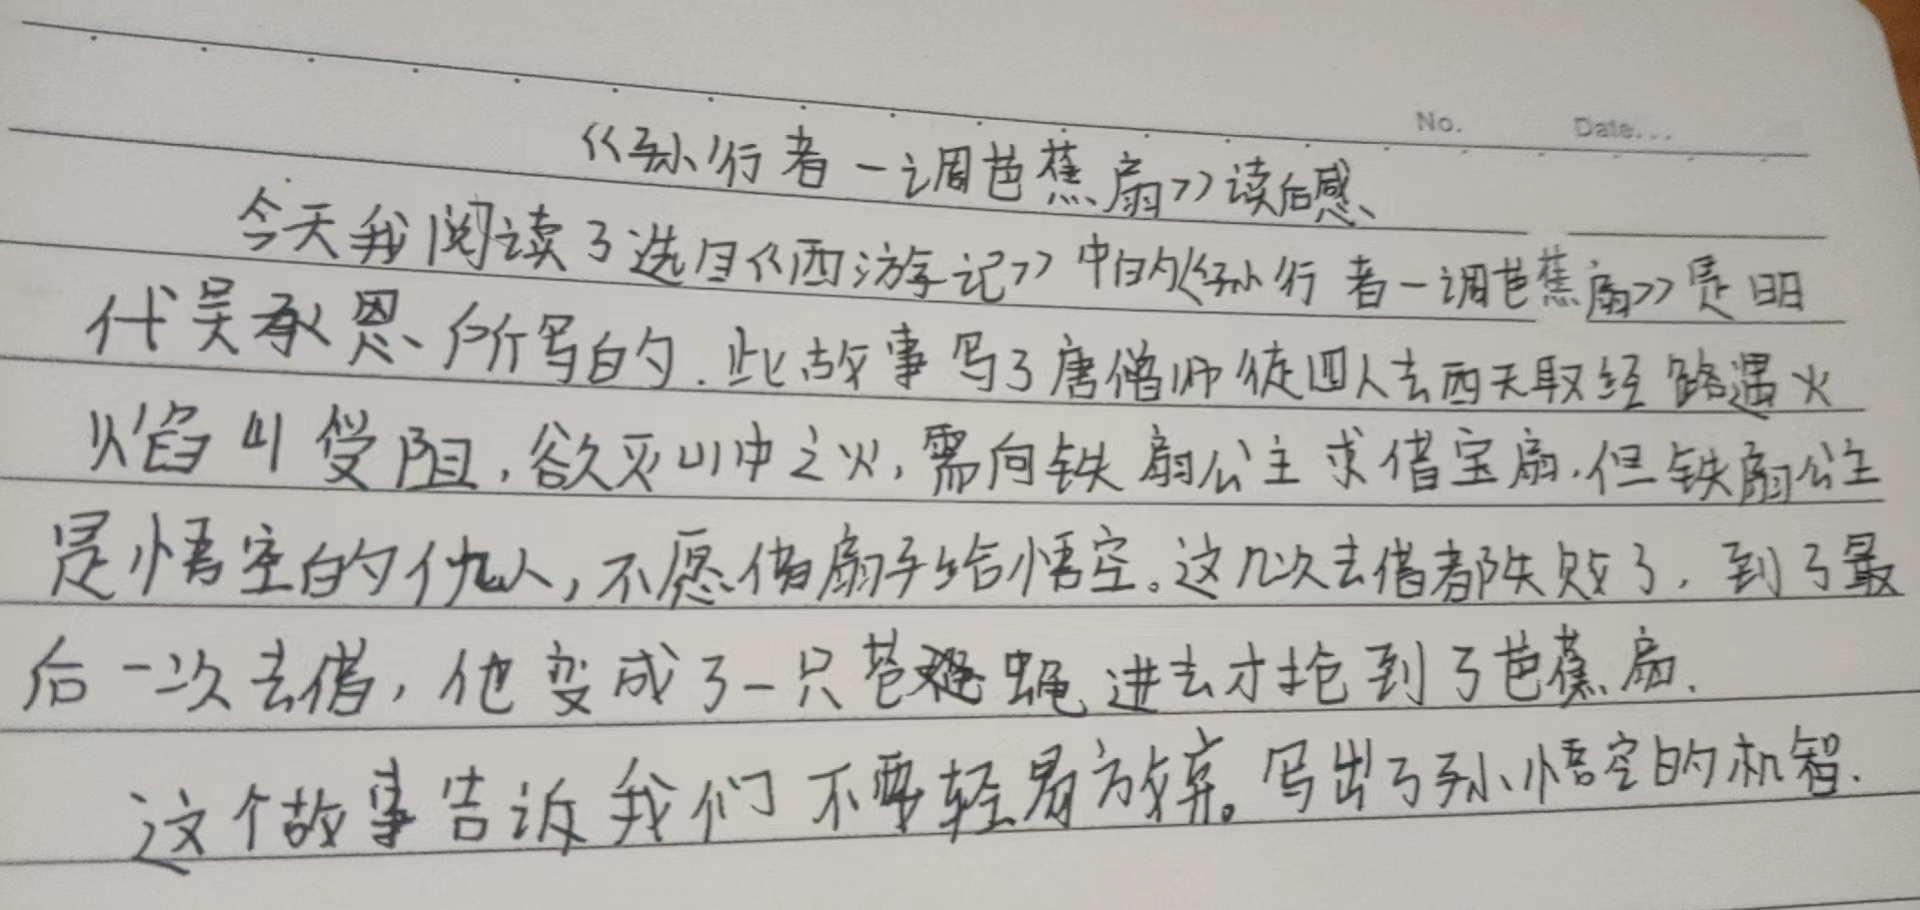 No. Date...
《孙行者一调芭蕉扇》读后感
今天我阅读了选自《西游记》中的《孙行者一调芭蕉扇》是明
代吴承恩所写的.此故事写了唐僧师徒四人去西天取经路遇火
焰山受阻,欲灭山中之火,需向铁扇公主求借宝扇.但铁扇公主
是悟空的仇人,不愿借扇子给悟空。这几次去借都失败了,到了最
后一次去借,他变成了一只苍蝇进去才抢到了芭蕉扇.
这个故事告诉我们不要轻易放弃。写出了孙悟空的机智.